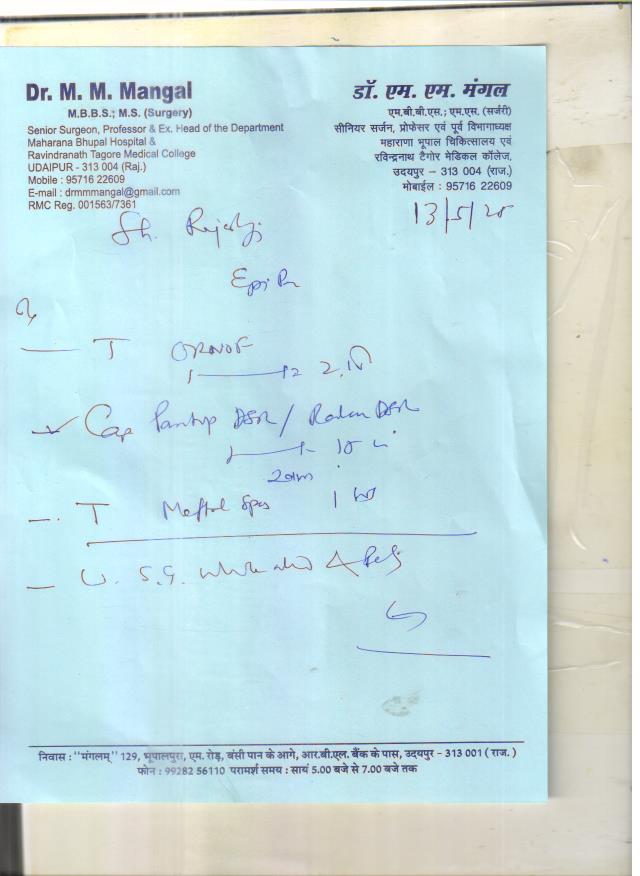 Dr. M. M. Mangal
M.B.B.S.; M.S. (Surgery)
Senior Surgeon, Professor & Ex. Head of the Department
Maharana Bhupal Hospital &
Ravindranath Tagore Medical College
UDAIPUR - 313 004 (Raj.)
Mobile : 95716 22609
E-mail : drmmmangal@gmail.com
RMC Reg. 001563/7361
डॉ. एम. एम. मंगल
एम.बी.बी.एस.; एम.एस. (सर्जरी)
सीनियर सर्जन, प्रोफेसर एवं पूर्व विभागाध्यक्ष
महाराणा भूपाल चिकित्सालय एवं
रविन्द्रनाथ टैगोर मेडिकल कॉलेज,
उदयपुर – 313 004 (राज.)
मोबाईल : 95716 22609
13/5/
Sh.
T
Cap Pantop DSR /
T Meftal Spas
U. S. G. whole abd
निवास : "मंगलम्" 129, भूपालपुरा, एम. रोड़, बंसी पान के आगे, आर.बी.एल. बैंक के पास, उदयपुर - 313 001 ( राज. )
फोन : 99282 56110 परामर्श समय : सायं 5.00 बजे से 7.00 बजे तक